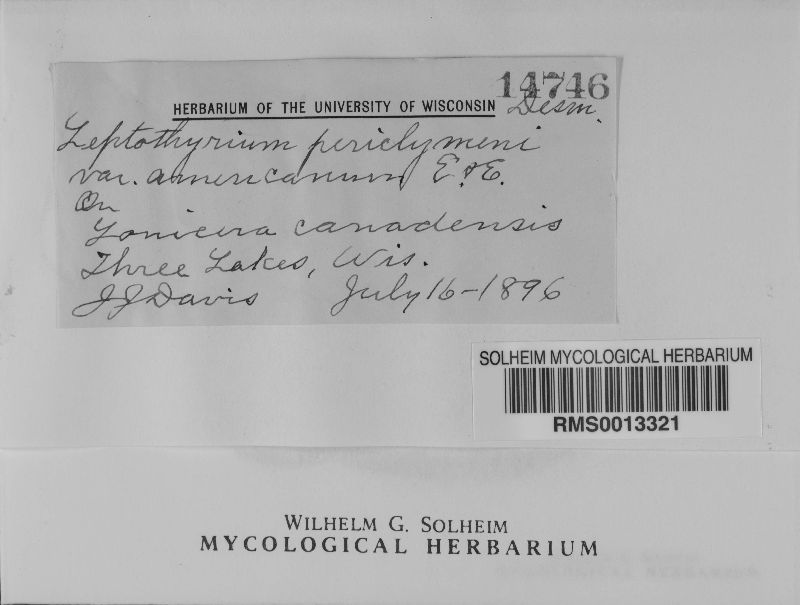 14746
HERBARIUM OF THE UNIVERSITY OF WISCONSIN
Desm.
Leptothyrium periclymeni
var. americanum E. & E.
On
Lonicera canadensis
Three Lakes, Wis.
JJ Davis July 16-1896
SOLHEIM MYCOLOGICAL HERBARIUM
RMS0013321
WILHELM G. SOLHEIM
MYCOLOGICAL HERBARIUM